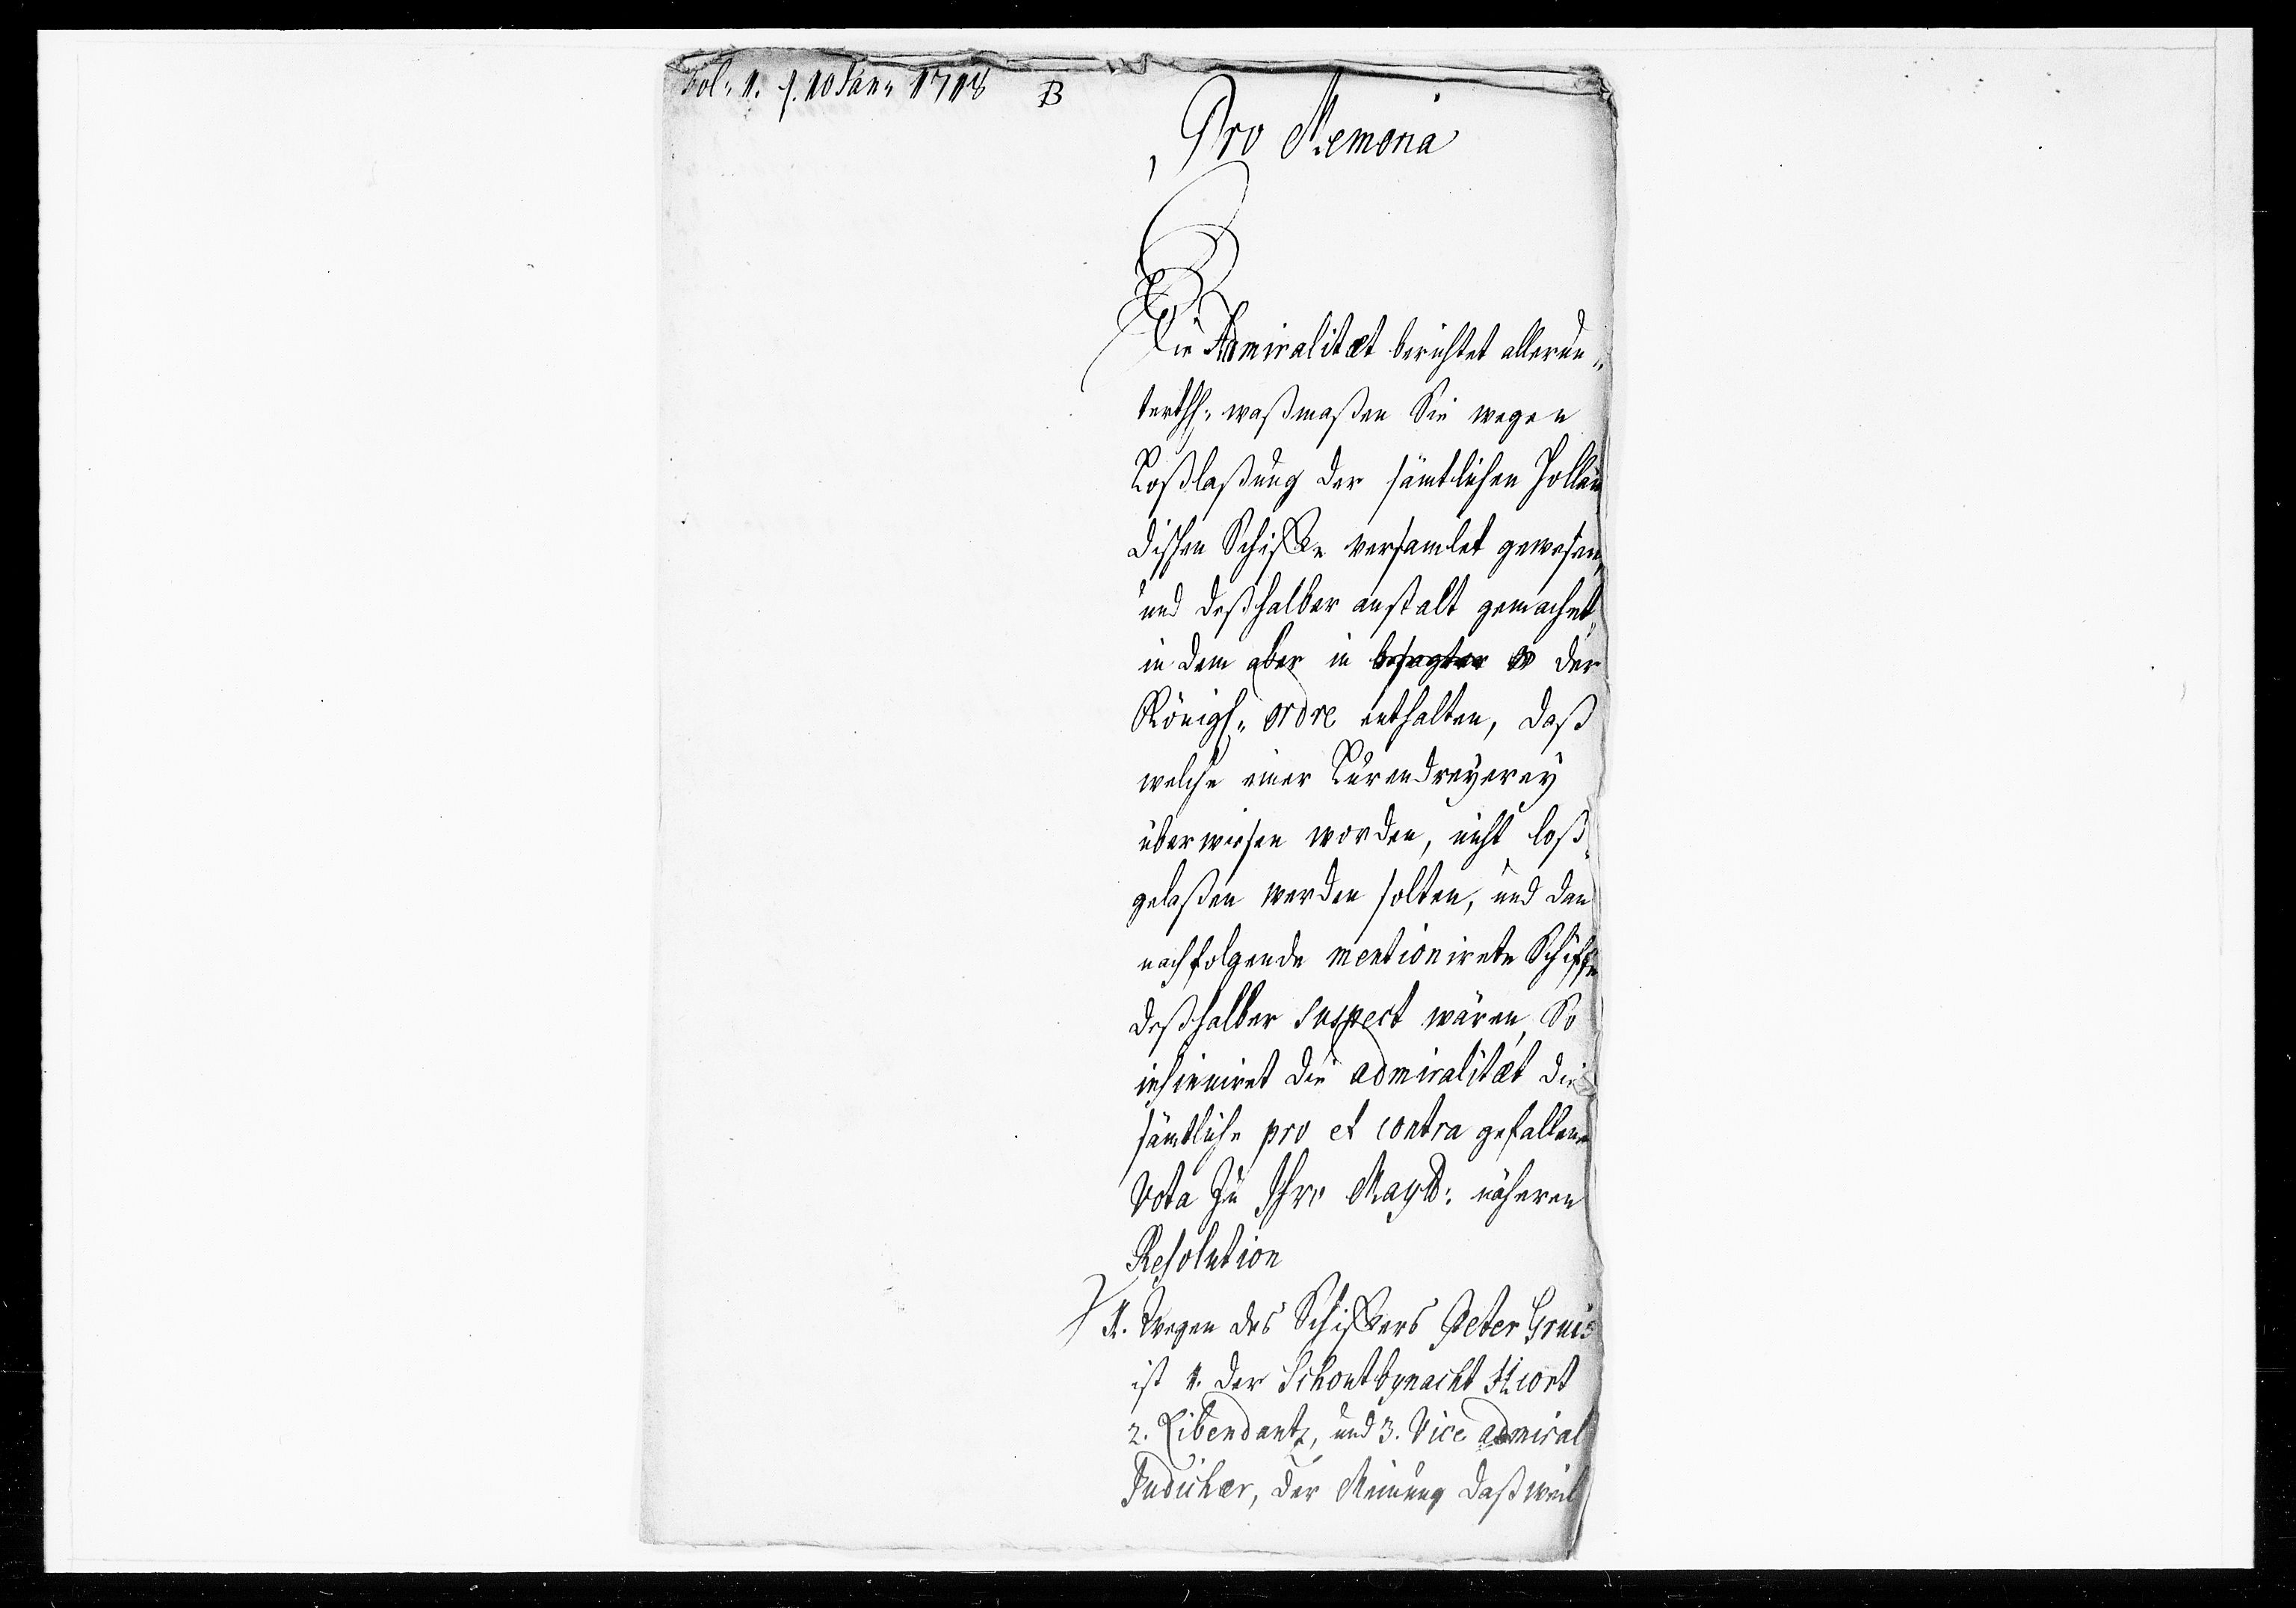 Fol: 1. f. 10 Jan: 1718 B
Pro Memoria
Die Admiralitæt berichtet allerun„
terthl: waßmaßen Sie wegen
Loßlaßung der sämtlichen Hollän
dischen Schiffe versamlet gewesen,
und deßhalber anstalt gemachet,
in dem aber in besagter der
Königl: ordre enthalten, daß
welche einer Lurendreyerey
überwiesen worden, nicht loß„
gelaßen werden solten, und dan
nachfolgende mentionirte Schiffe
deßhalber suspect wären, So
insinuiret die admiralitæt die
sämtliche pro et contra gefallene
Vota zu Ihro Maytt: näheren
Resolution
1. Wegen des Schiffers Peter Gruis
ist 1. der Schoutbynacht Hiort
2. Libendantz, und 3. Vice admiral
Judichær, der Meinung daß weil